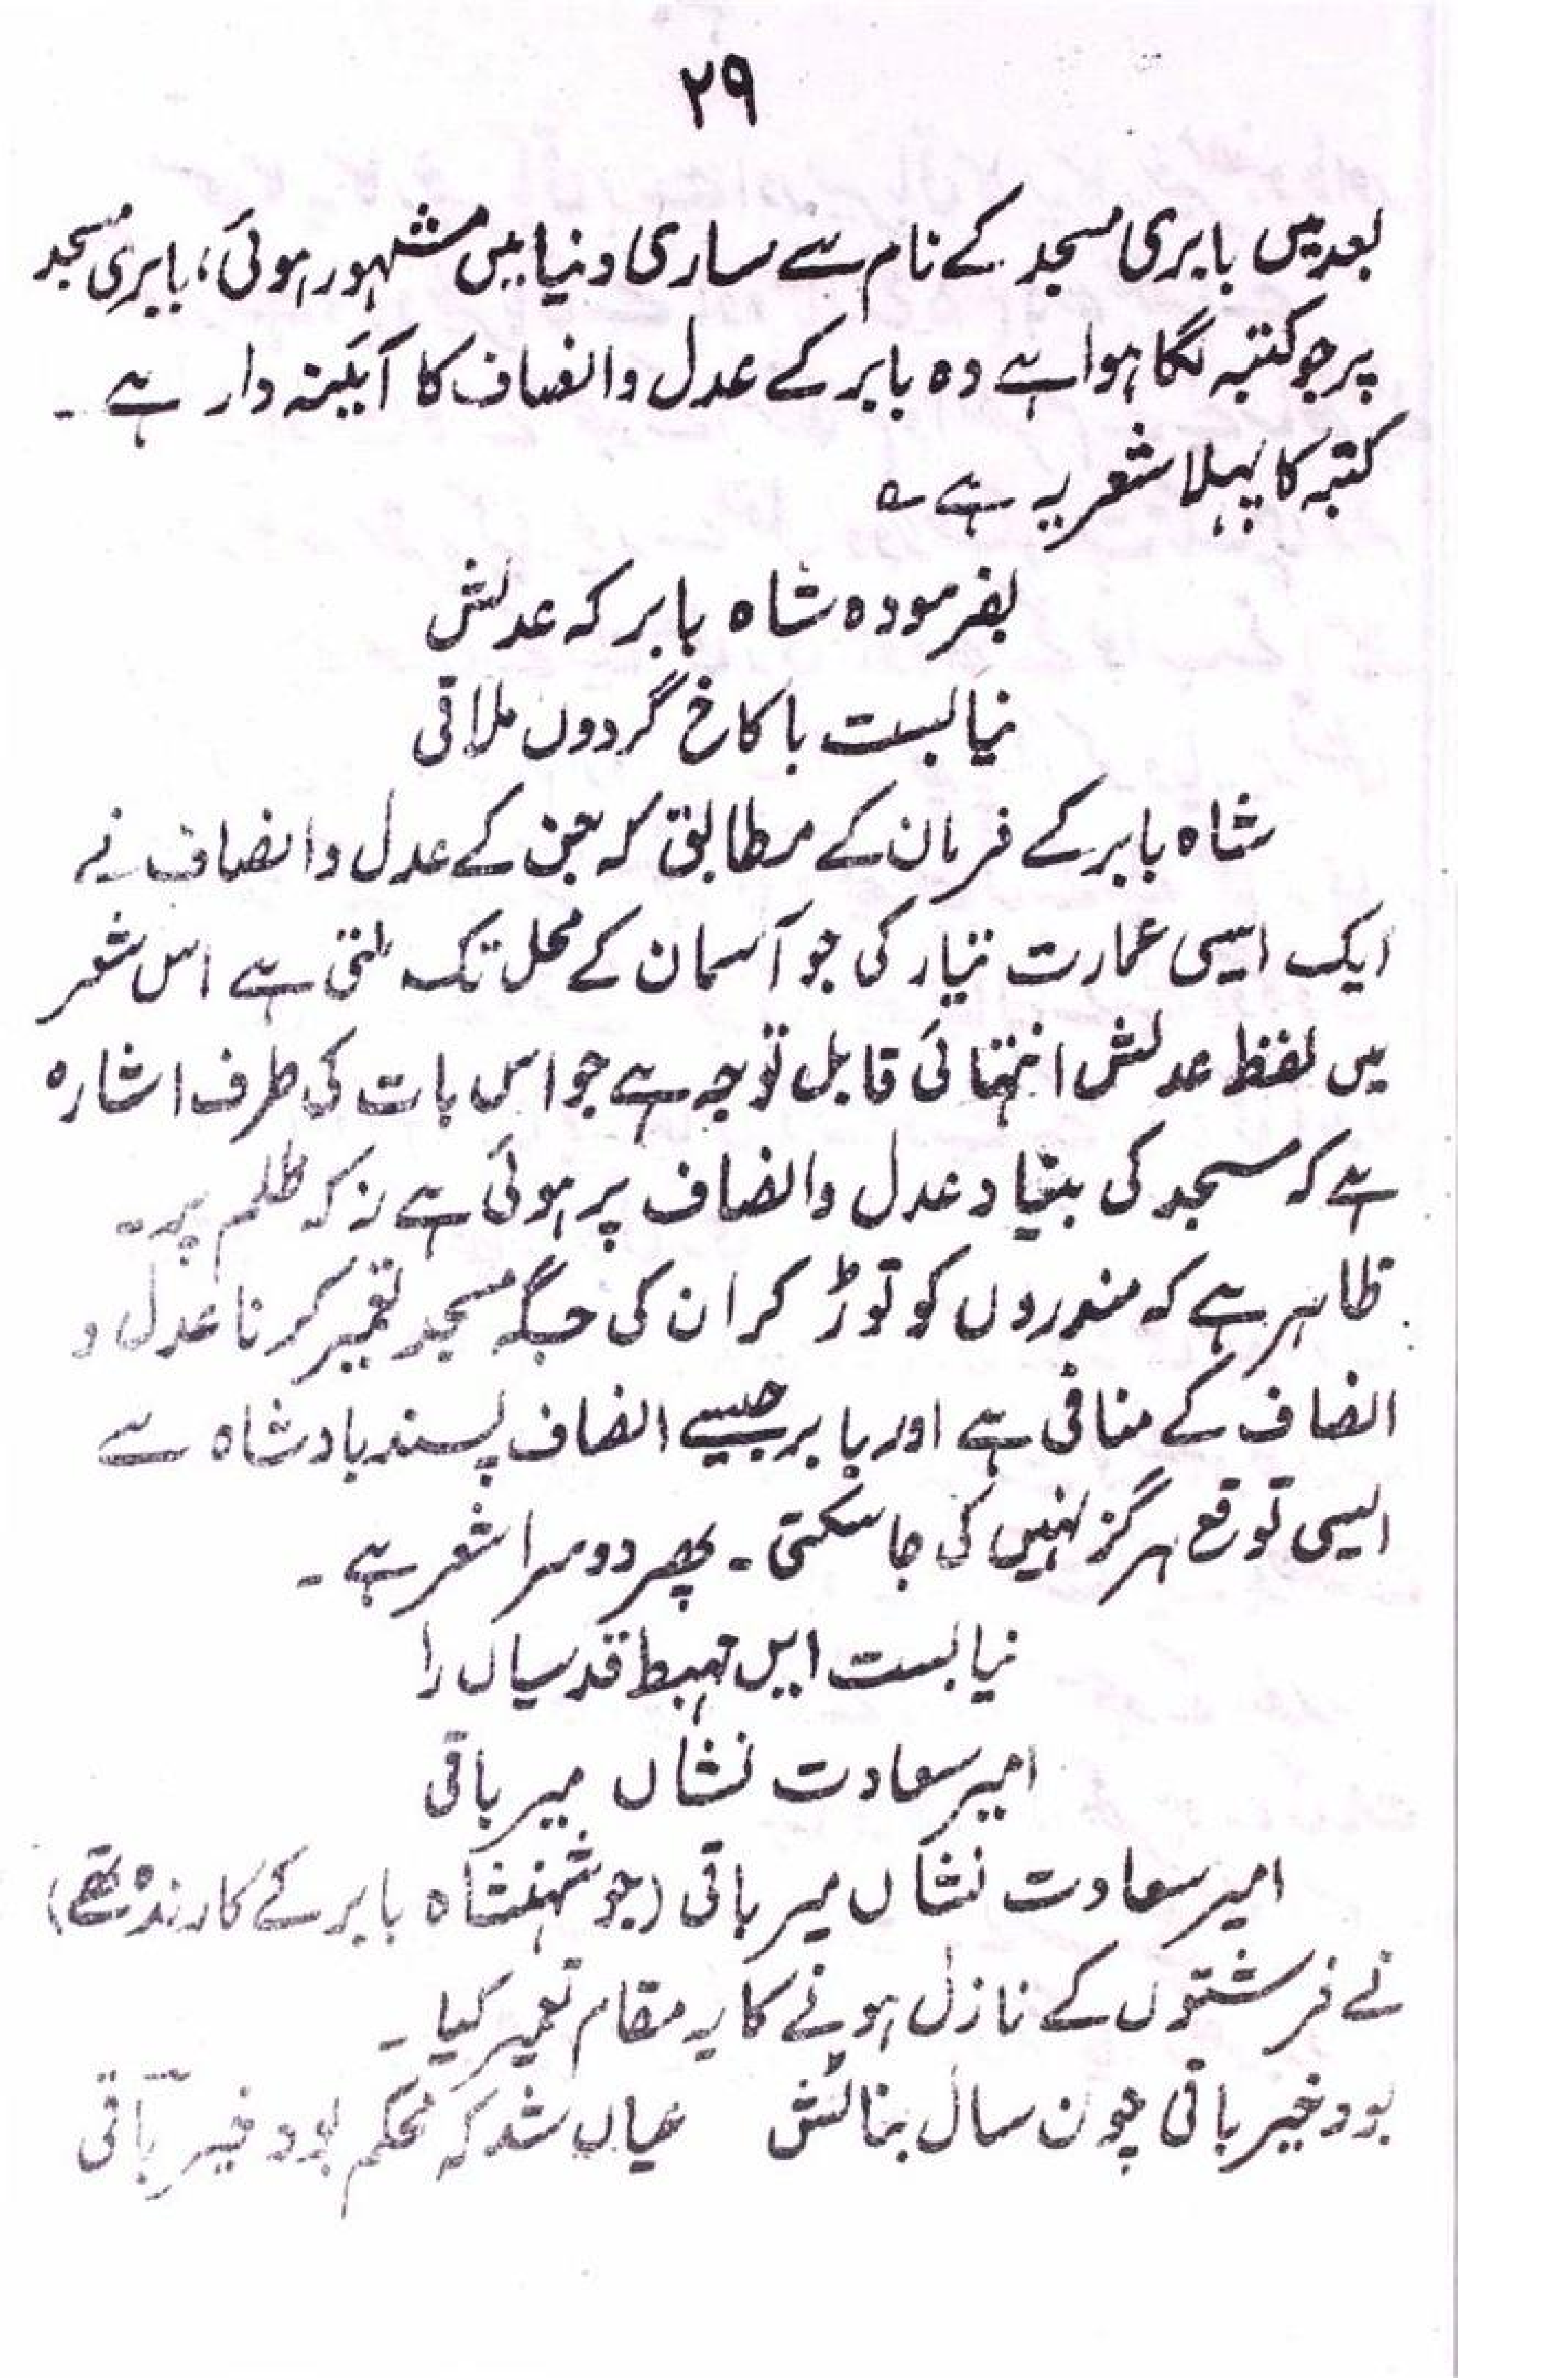 ۲۹
بعد میں بابری مسجد کے نام سے ساری دنیا میں مشہور ہوئی، بابری مسجد
پر جو کتبہ لگا ہوا ہے وہ بابر کے عدل و انصاف کا آئینہ دار ہے ۔
کتبہ کا پہلا شعر یہ ہے ؎
بفرمودہ شاہ بابر کہ عدلش
نیا بست با کاخ گردوں ملاقی
شاہ بابر کے فرمان کے مطابق کہ جن کے عدل و انصاف نے
ایک ایسی عمارت تیار کی جو آسمان کے محل تک ملتی ہے اس شعر
میں لفظ عدلش انتہائی قابل توجہ ہے جو اس بات کی طرف اشارہ
ہے کہ مسجد کی بنیاد عدل و انصاف پر ہوئی ہے نہ کہ ظلم پر ۔
ظاہر ہے کہ مندروں کو توڑ کر ان کی جگہ مسجد تعمیر کرنا عدل و
انصاف کے منافی ہے اور بابر جیسے انصاف پسند بادشاہ سے
ایسی توقع ہرگز نہیں کی جا سکتی ۔ پھر دوسرا شعر ہے ۔
نیا بست ایں مہبط قدسیاں را
امیر سعادت نشاں میر باقی
امیر سعادت نشاں میر باقی (جو شہنشاہ بابر کے کارندہ تھے)
نے فرشتوں کے نازل ہونے کا یہ مقام تعمیر کیا ۔
بود خیر باقی چون سال بنائش عیاں شد کہ محکم بود خیر باقی